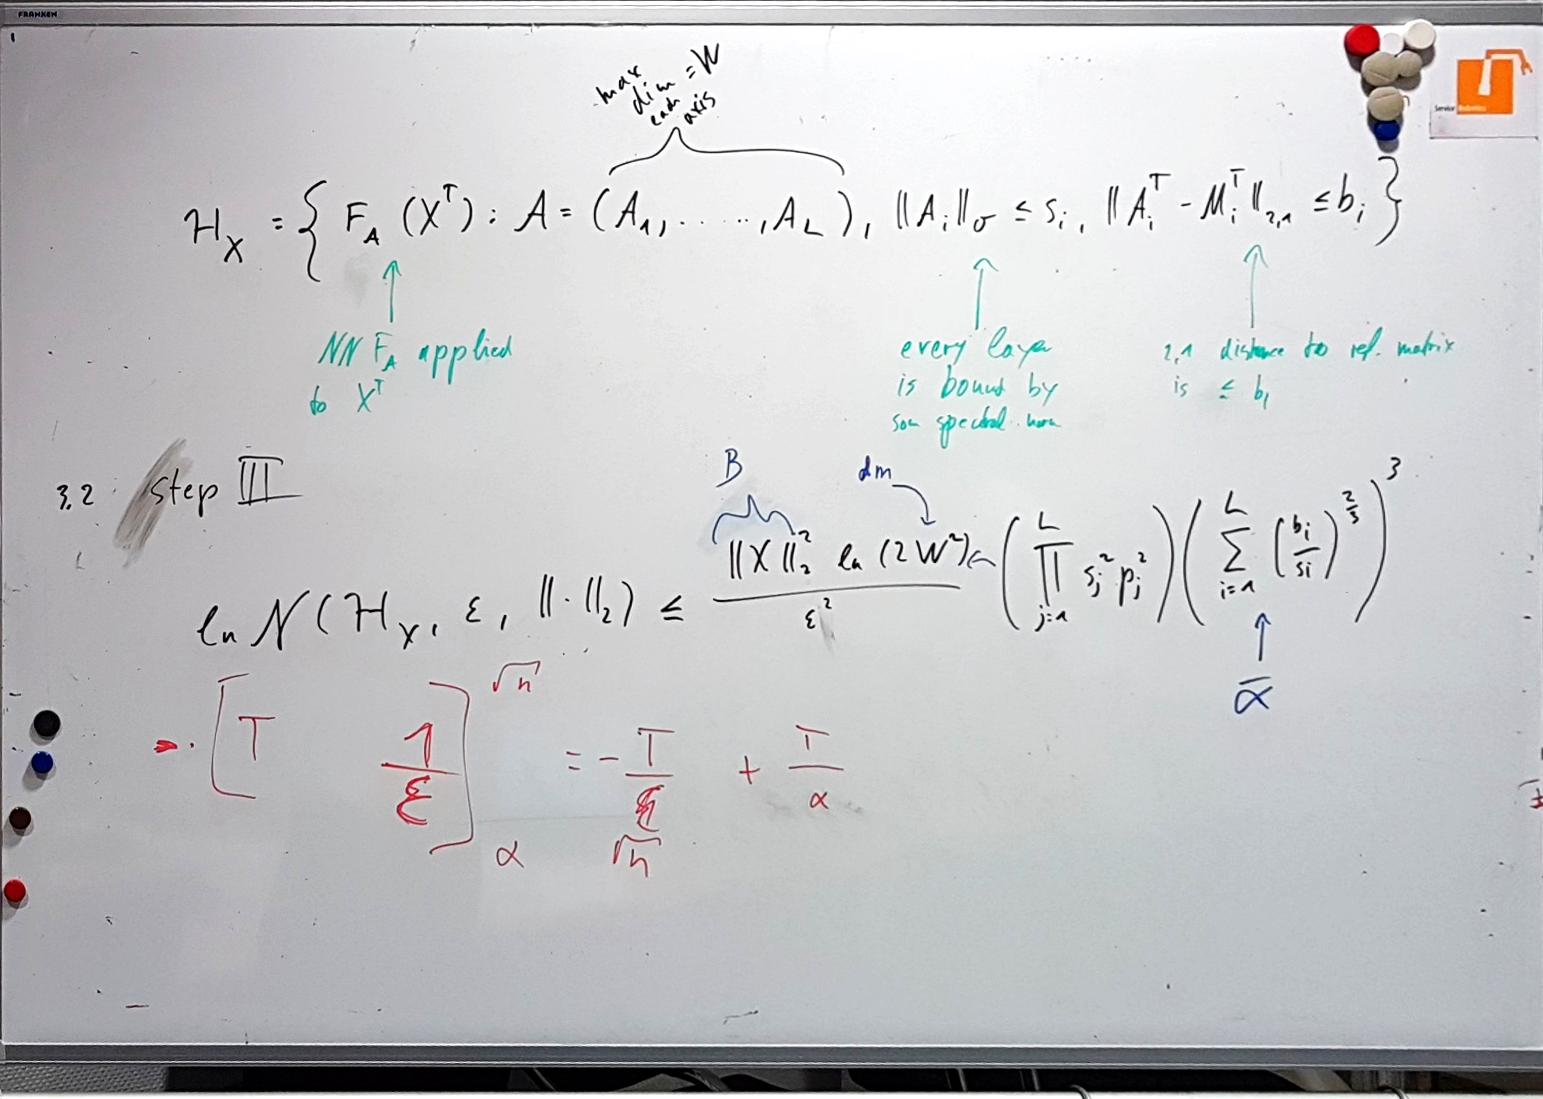 FRANKEN
max dim = W
each axis
Service Robotics
H_X = { F_A (X^T) : A = (A_1, ......, A_L), ‖A_i‖_σ ≤ s_i, ‖A_i^T - M_i^T‖_{2,1} ≤ b_i }
NN F_A applied
to X^T
every laye
is bound by
som spectral norm
2,1 distance to ref. matrix
is ≤ b_i
3.2 step III
B
dm
ln N(H_X, ε, ‖·‖_2) ≤ ‖X‖_2^2 ln (2W^2) / ε^2 (∏_{j=1}^L s_j^2 p_j^2) (∑_{i=1}^L (b_i/s_i)^{2/3})^3
α̅
[T 1/ε]_α^{√n} = - T/√n + T/α